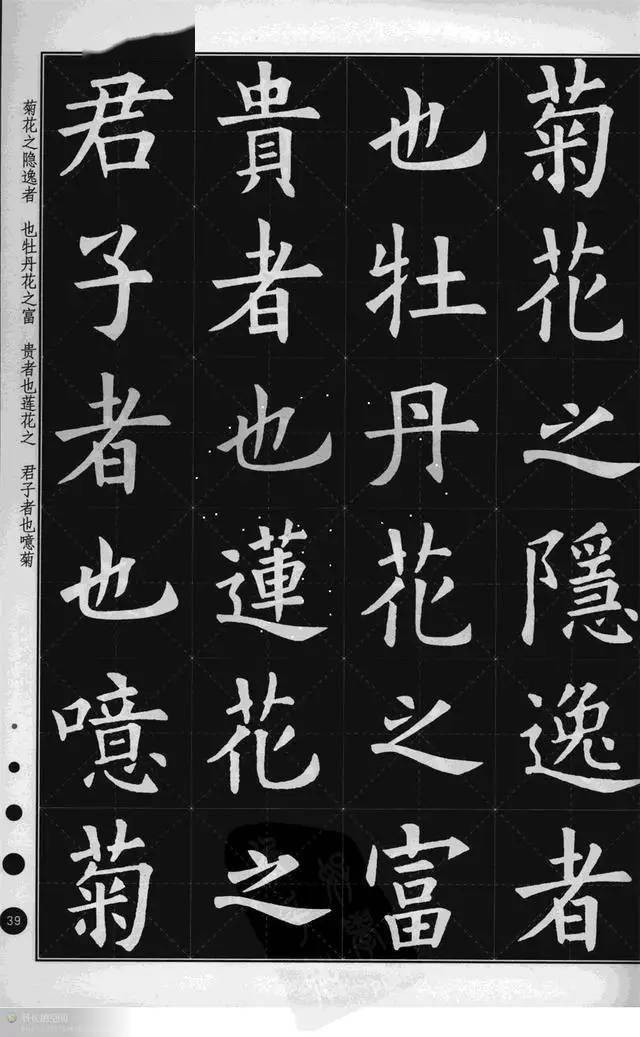 菊花之隱逸者
也牡丹花之富
貴者也蓮花之
君子者也噫菊
菊花之隐逸者 也牡丹花之富 贵者也莲花之 君子者也噫菊
39